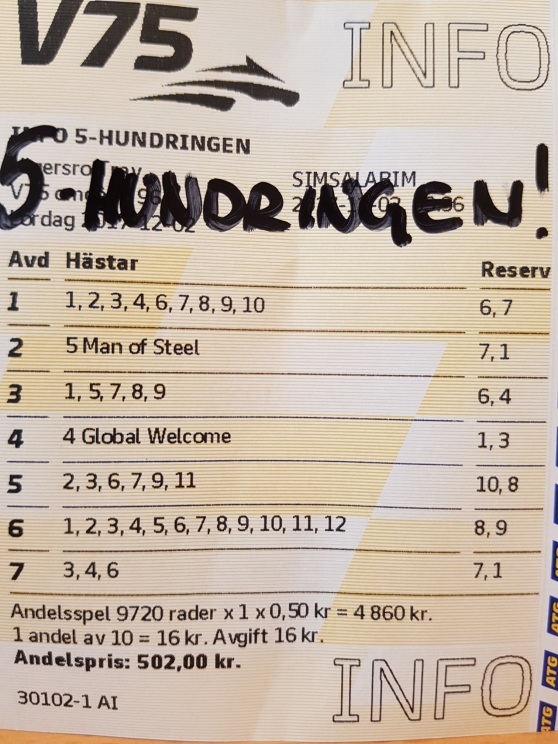 V75 INFO
INFO 5-HUNDRINGEN
5-HUNDRINGEN!
SIMSALABIM
V75
Avd Hästar Reserv
1 1, 2, 3, 4, 6, 7, 8, 9, 10 6, 7
2 5 Man of Steel 7, 1
3 1, 5, 7, 8, 9 6, 4
4 4 Global Welcome 1, 3
5 2, 3, 6, 7, 9, 11 10, 8
6 1, 2, 3, 4, 5, 6, 7, 8, 9, 10, 11, 12 8, 9
7 3, 4, 6 7, 1
Andelsspel 9720 rader x 1 x 0,50 kr = 4 860 kr.
1 andel av 10 = 16 kr. Avgift 16 kr.
Andelspris: 502,00 kr.
30102-1 AI
INFO
ATG
ATG
ATG